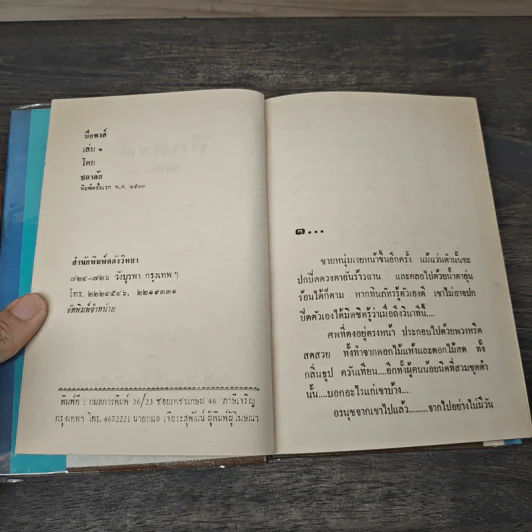 ปึกหงส์
เล่ม ๑
โดย
ชลาลัย
พิมพ์ครั้งแรก พ.ศ. ๒๕๓๓
สำนักพิมพ์คลังวิทยา
๗๒๔-๗๒๖ วังบูรพา กรุงเทพฯ
โทร. ๒๒๒๔๕๔๖, ๒๒๑๙๓๓๑
จัดพิมพ์จำหน่าย
พิมพ์ที่ : กมลการพิมพ์ 36/23 ซอยเพชรเกษม 46 ภาษีเจริญ
กรุงเทพฯ โทร. 4672221 นายกมล เจียระสุพัฒน์ ผู้พิมพ์ผู้โฆษณา
๑...
ชายหนุ่มเงยหน้าขึ้นอีกครั้ง แม้แว่นดำนั้นจะ
ปกปิดดวงตาอันร้าวฉาน และคลอไปด้วยน้ำตาอุ่น
ร้อนได้ก็ตาม หากทินภัทร์รู้ตัวเองดี เขาไม่อาจปก
ปิดตัวเองได้มิดชิดรู้ว่าเมื่อถึงวินาทีนี้....
ศพที่ตงอยู่ตรงหน้า ประกอบไปด้วยพวงหรีด
สดสวย ทั้งทำจากดอกไม้แห้งและดอกไม้สด ทั้ง
กลิ่นธูป ควันเทียน....อีกทั้งผู้คนน้อยนิดที่สวมชุดดำ
นั้น....บอกอะไรแก่เขาบ้าง....
อรนุชจากเขาไปแล้ว........จากไปอย่างไม่มีวัน